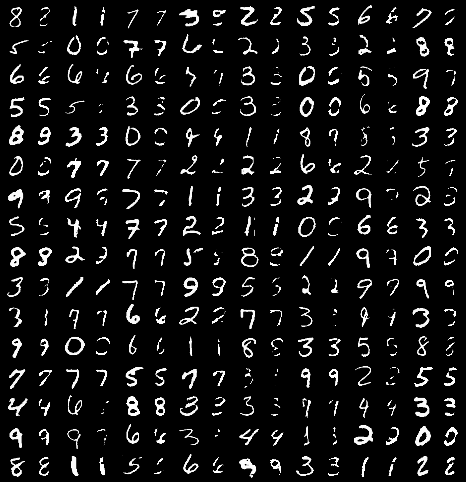 8 8 1 1 7 7 3 2 2 5 5 6 6 7
5 5 0 0 7 7 6 2 2 3 3 2 8 8
6 6 6 6 6 7 7 3 3 0 5 9 9
5 5 5 3 3 0 3 3 0 0 6 8 8
8 8 3 3 0 0 9 9 1 1 8 8 3 3
0 0 7 7 7 7 2 2 2 2 6 6 2 5
9 9 9 7 7 1 1 3 3 2 2 9 2
5 5 4 4 7 7 2 2 1 1 0 6 6 3 3
8 8 2 2 7 7 5 8 8 1 1 9 9 0 0
3 3 1 1 7 7 9 9 5 5 2 2 9 9 9 9
3 1 7 7 6 6 2 2 7 7 3 9 9 3 3
9 9 0 0 6 6 1 1 8 8 3 3 5 5 8 8
7 7 7 7 5 5 7 7 3 9 9 2 5 5
4 4 6 8 8 3 3 3 3 9 9 3 3
9 9 9 6 6 3 4 4 1 2 2 0 0
8 8 1 1 5 5 6 6 9 9 3 3 1 1 2 2